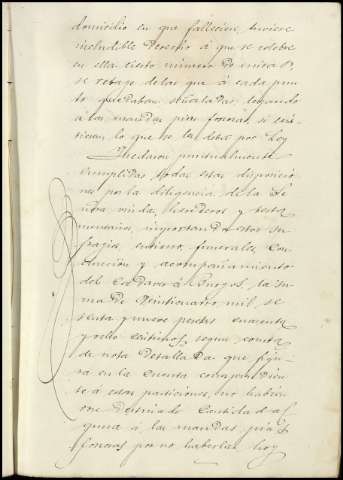 domicilio en que falleciere, tuviere
includible derecho á que se celebre
en ella cierto número de misas,
se rebaje de las que á cada pun-
to quedaban señaladas, legando
á las mandas pías forzosas, si exis-
tieran, lo que se las deba por ley
Quedaron puntualmente
cumplidas todas estas disposicio
nes por la diligencia de la Se
ñora viuda, herederos y testa
mentarios, importando estos su
fragios, entierro, funerales, con
ducción y acompañamiento
del cadáver á Burgos, la su
ma de veinticuatro mil, se
senta y nueve pesetas cuarenta
y ocho céntimos, según consta
de nota detallada que figu-
ra en la cuenta correspondien
te á estas particiones, no habién
dose destinado cantidad al
guna á las mandas pías
forzosas por no haberlas hoy